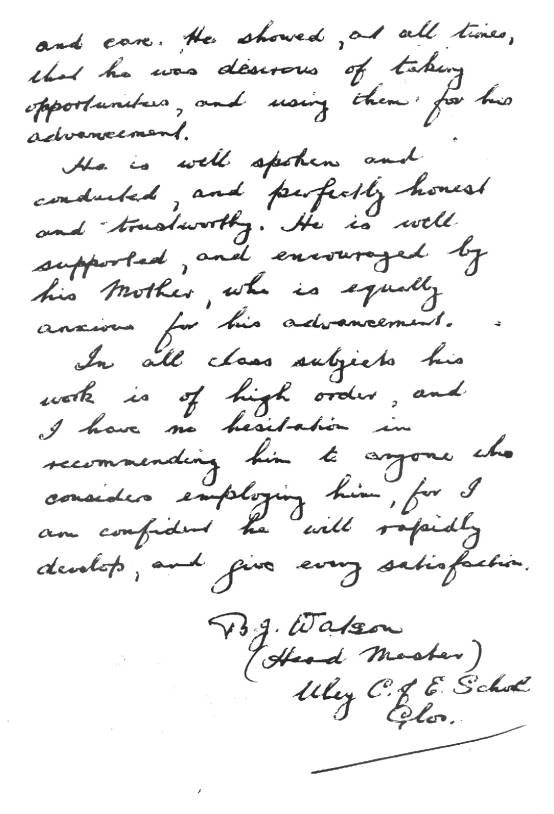 and care. He showed, at all times,
that he was desirous of taking
opportunities, and using them for his
advancement.
He is well spoken and
conducted, and perfectly honest
and trustworthy. He is well
supported, and encouraged by
his Mother, who is equally
anxious for his advancement.
In all class subjects his
work is of high order, and
I have no hesitation in
recommending him to anyone who
considers employing him, for I
am confident he will rapidly
develop, and give every satisfaction.
B.J. Watson
(Head Master)
Uley C. of E. School
Glos.